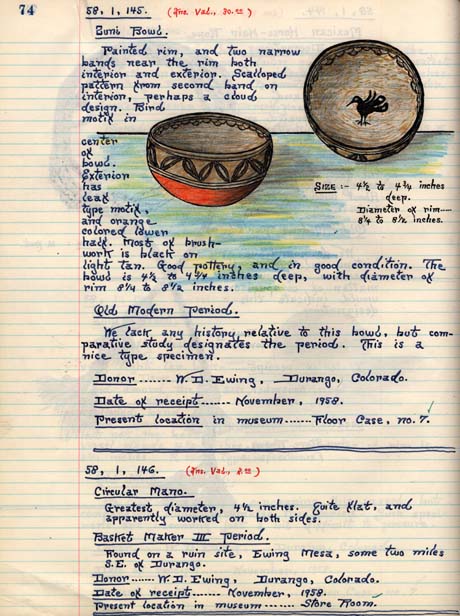 74
58, 1, 145. (Ins. Val., 30.00)
Zuni Bowl.
Painted rim, and two narrow
bands near the rim both
interior and exterior. Scalloped
pattern from second band on
interior, perhaps a cloud
design. Bird
motif in
center
of
bowl.
Exterior
has
leaf
type motif,
and orange
colored lower
half. Most of brush-
work is black on
light tan. Good pottery, and in good condition. The
bowl is 4½ to 4¾ inches deep, with diameter of
rim 8¼ to 8½ inches.
SIZE :- 4½ to 4¾ inches
deep.
Diameter of rim-----
8¼ to 8½ inches.
Old Modern Period.
We lack any history relative to this bowl, but com-
parative study designates the period. This is a
nice type specimen.
Donor ------- W. D. Ewing, Durango, Colorado.
Date of receipt ------- November, 1958.
Present location in museum ------- Floor Case, no. 7. ✓
58, 1, 146. (Ins. Val., 2.00)
Circular Mano.
Greatest diameter, 4½ inches. Quite flat, and
apparently worked on both sides.
Basket Maker III Period.
Found on a ruin site, Ewing Mesa, some two miles
S.E. of Durango.
Donor ------- W. D. Ewing, Durango, Colorado.
Date of receipt ------- November, 1958.
Present location in museum ------- Store Room. ✓